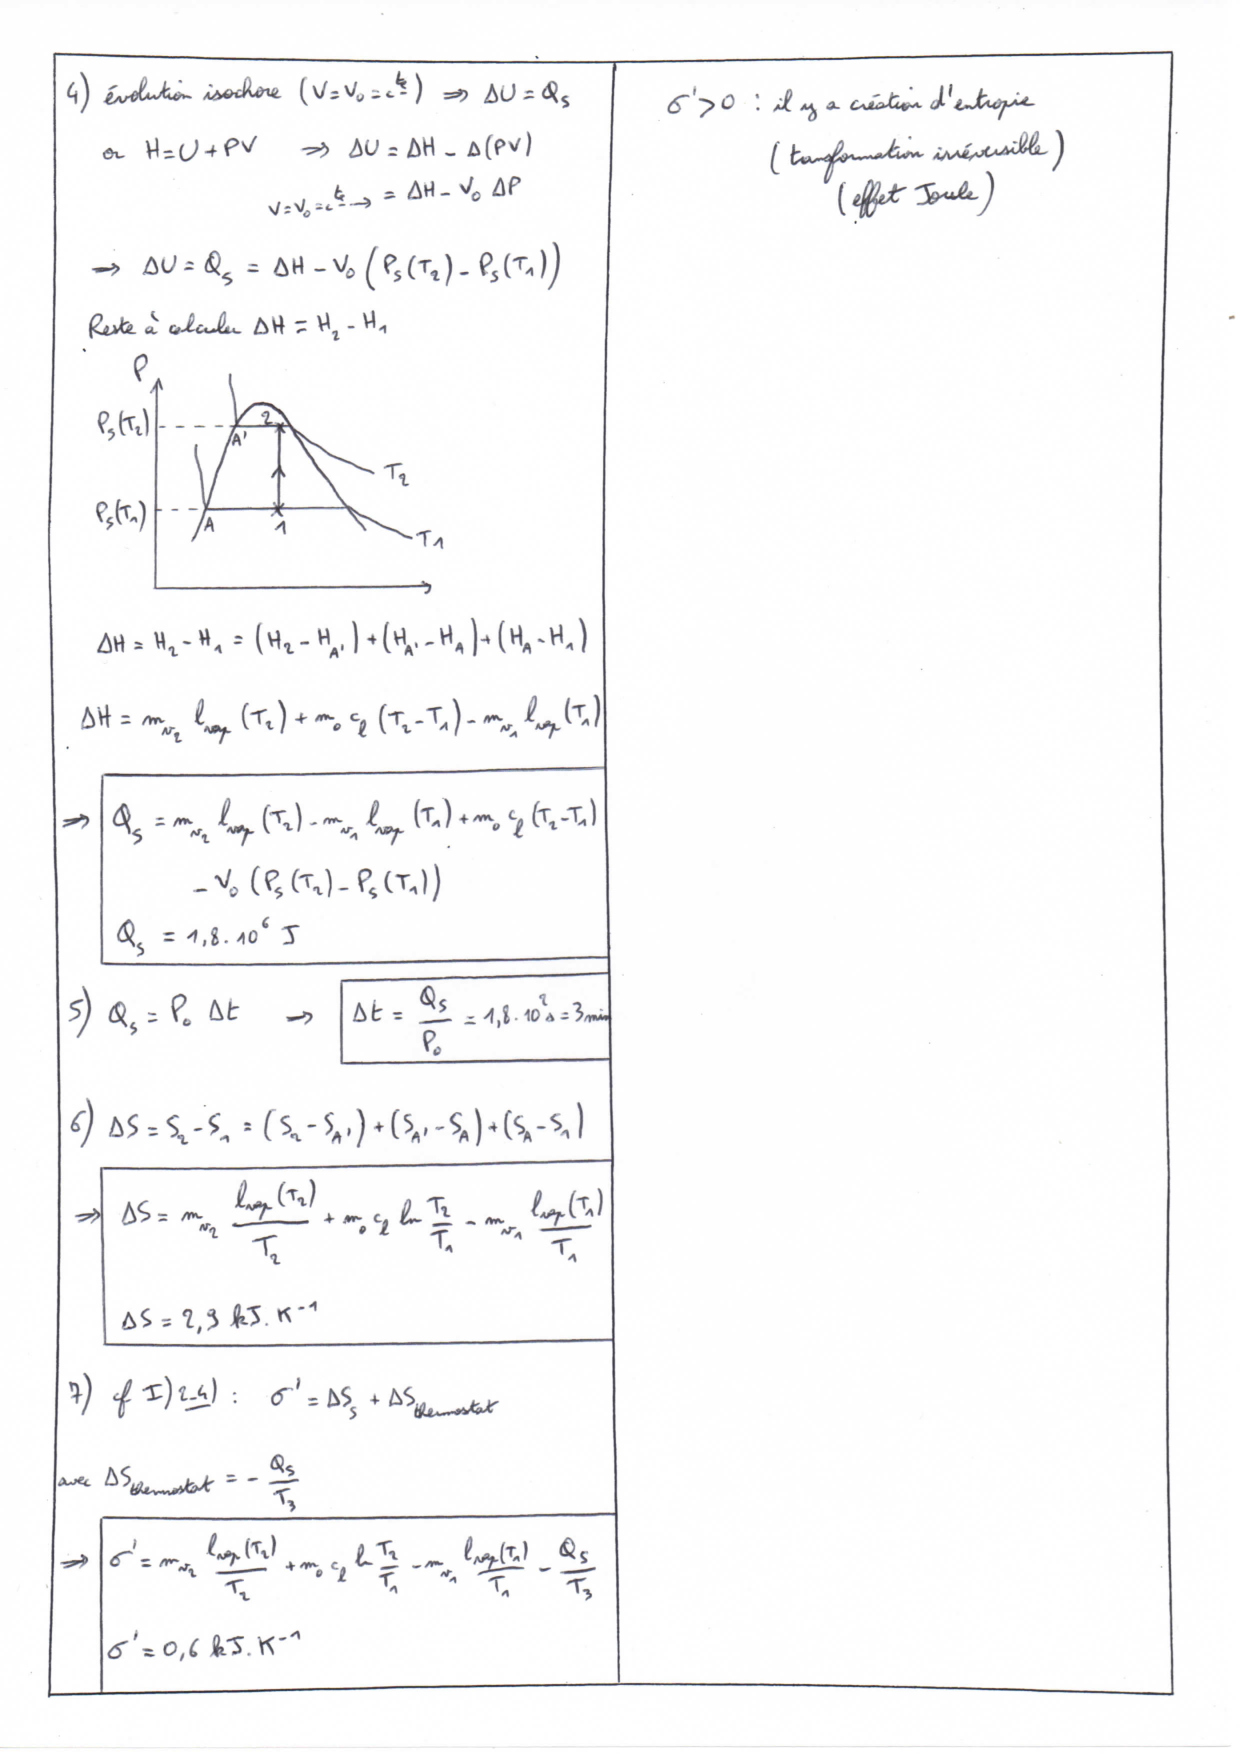 4) évolution isochore (V=V₀=cte) ⇒ ΔU = Qₛ
or H=U+PV ⇒ ΔU = ΔH - Δ(PV)
V=V₀=cte → = ΔH - V₀ ΔP
⇒ ΔU = Qₛ = ΔH - V₀ (Pₛ(T₂) - Pₛ(T₁))
Reste à calculer ΔH = H₂ - H₁
P
Pₛ(T₂)
A'
2
T₂
Pₛ(T₁)
A
1
T₁
ΔH = H₂ - H₁ = (H₂ - H_A') + (H_A' - H_A) + (H_A - H₁)
ΔH = m_v₂ l_vap (T₂) + m₀ c_l (T₂ - T₁) - m_v₁ l_vap (T₁)
⇒ Qₛ = m_v₂ l_vap (T₂) - m_v₁ l_vap (T₁) + m₀ c_l (T₂ - T₁)
- V₀ (Pₛ(T₂) - Pₛ(T₁))
Qₛ = 1,8.10⁶ J
5) Qₛ = P₀ Δt → Δt = Qₛ/P₀ = 1,8.10² s = 3 min
6) ΔS = S₂ - S₁ = (S₂ - S_A') + (S_A' - S_A) + (S_A - S₁)
⇒ ΔS = m_v₂ l_vap(T₂)/T₂ + m₀ c_l ln T₂/T₁ - m_v₁ l_vap(T₁)/T₁
ΔS = 2,9 kJ.K⁻¹
7) cf I) 2-4) : σ' = ΔSₛ + ΔS_thermostat
avec ΔS_thermostat = - Qₛ/T₃
⇒ σ' = m_v₂ l_vap(T₂)/T₂ + m₀ c_l ln T₂/T₁ - m_v₁ l_vap(T₁)/T₁ - Qₛ/T₃
σ' = 0,6 kJ.K⁻¹
σ' > 0 : il y a création d'entropie
(tansformation irréversible)
(effet Joule)